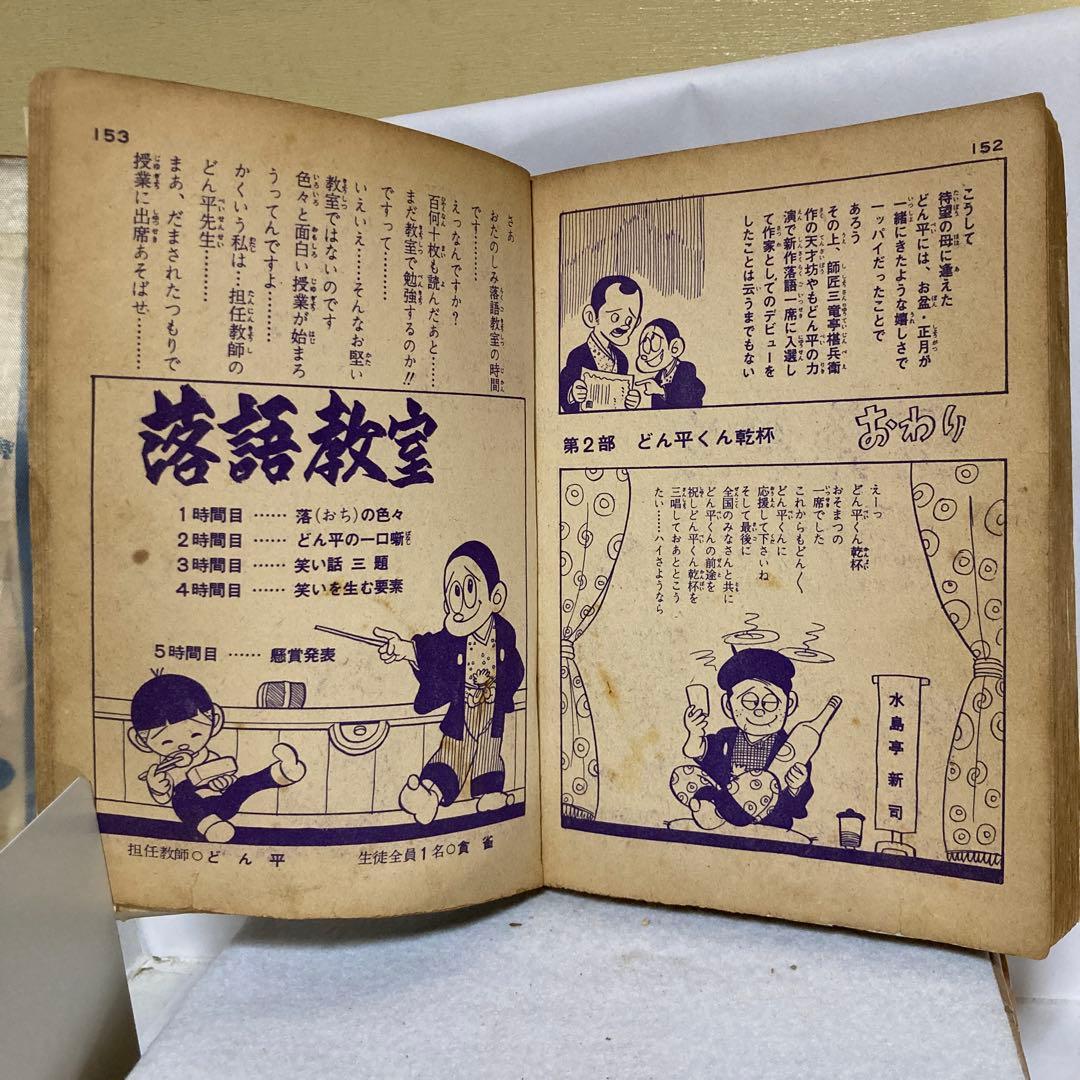 152
こうして
待望の母に逢えた
どん平には、お盆・正月が
一緒にきたような嬉しさで
一ッパイだったことで
あろう
その上、師匠三竜亭楛兵衛
作の天才坊やもどん平の力
演で新作落語一席に入選し
て作家としてのデビューを
したことは云うまでもない
第2部 どん平くん乾杯
おわり
えーっ
どん平くん乾杯
おそまつの
一席でした
これからもどんく
どん平くんに
応援して下さいね
そして最後に
全国のみなさんと共に
どん平くんの前途を
祝しどん平くん乾杯を
三唱しておあととこう
たい……ハイさようなら
水島亭新司
153
さぁ
おたのしみ落語教室の時間
です……
えっなんですか?
百何十枚も読んだあと……
まだ教室で勉強するのか!!
ですって……
いえいえ……そんなお堅い
教室ではないのです
色々と面白い授業が始まろ
うってんですよ……
かくいう私は…担任教師の
どん平先生………
まあ、だまされたつもりで
授業に出席あそばせ…………
落語教室
1時間目 …… 落(おち)の色々
2時間目 …… どん平の一口噺
3時間目 …… 笑い話三題
4時間目 …… 笑いを生む要素
5時間目 …… 懸賞発表
担任教師○どん平
生徒全員1名○貪雀